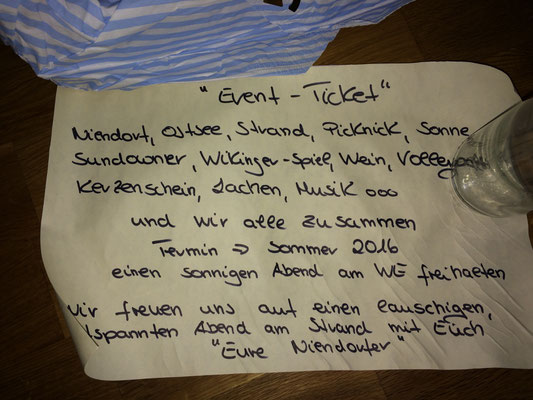 "Event-Ticket"
Niendorf, Ostsee, Strand, Picknick, Sonne
Sundowner, Wikinger-Spiel, Wein, Volleyball
Kerzenschein, Lachen, Musik ooo
und wir alle zusammen
Termin => Sommer 2016
einen sonnigen Abend am WE freihalten
wir freuen uns auf einen lauschigen,
spannten Abend am Strand mit Euch
"Eure Niendorfer"